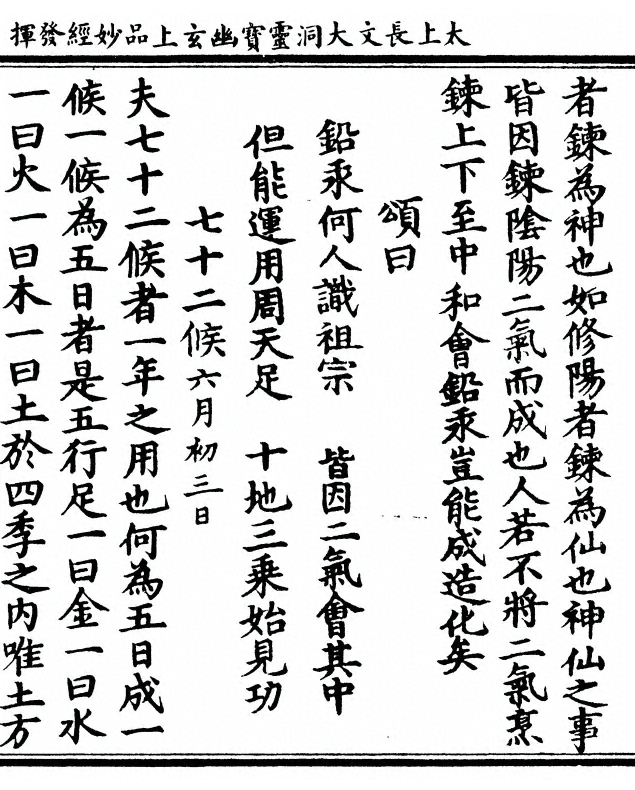 太上長文大洞靈寶幽玄上品妙經發揮
者鍊為神也如修陽者鍊為仙也神仙之事
皆因鍊陰陽二氣而成也人若不將二氣烹
鍊上下至中和會鉛汞豈能成造化矣
頌曰
鉛汞何人識祖宗　皆因二氣會其中
但能運用周天足　十地三乘始見功
七十二候六月初三日
夫七十二候者一年之用也何為五日成一
候一候為五日者是五行足一曰金一曰水
一曰火一曰木一曰土於四季之內唯土方